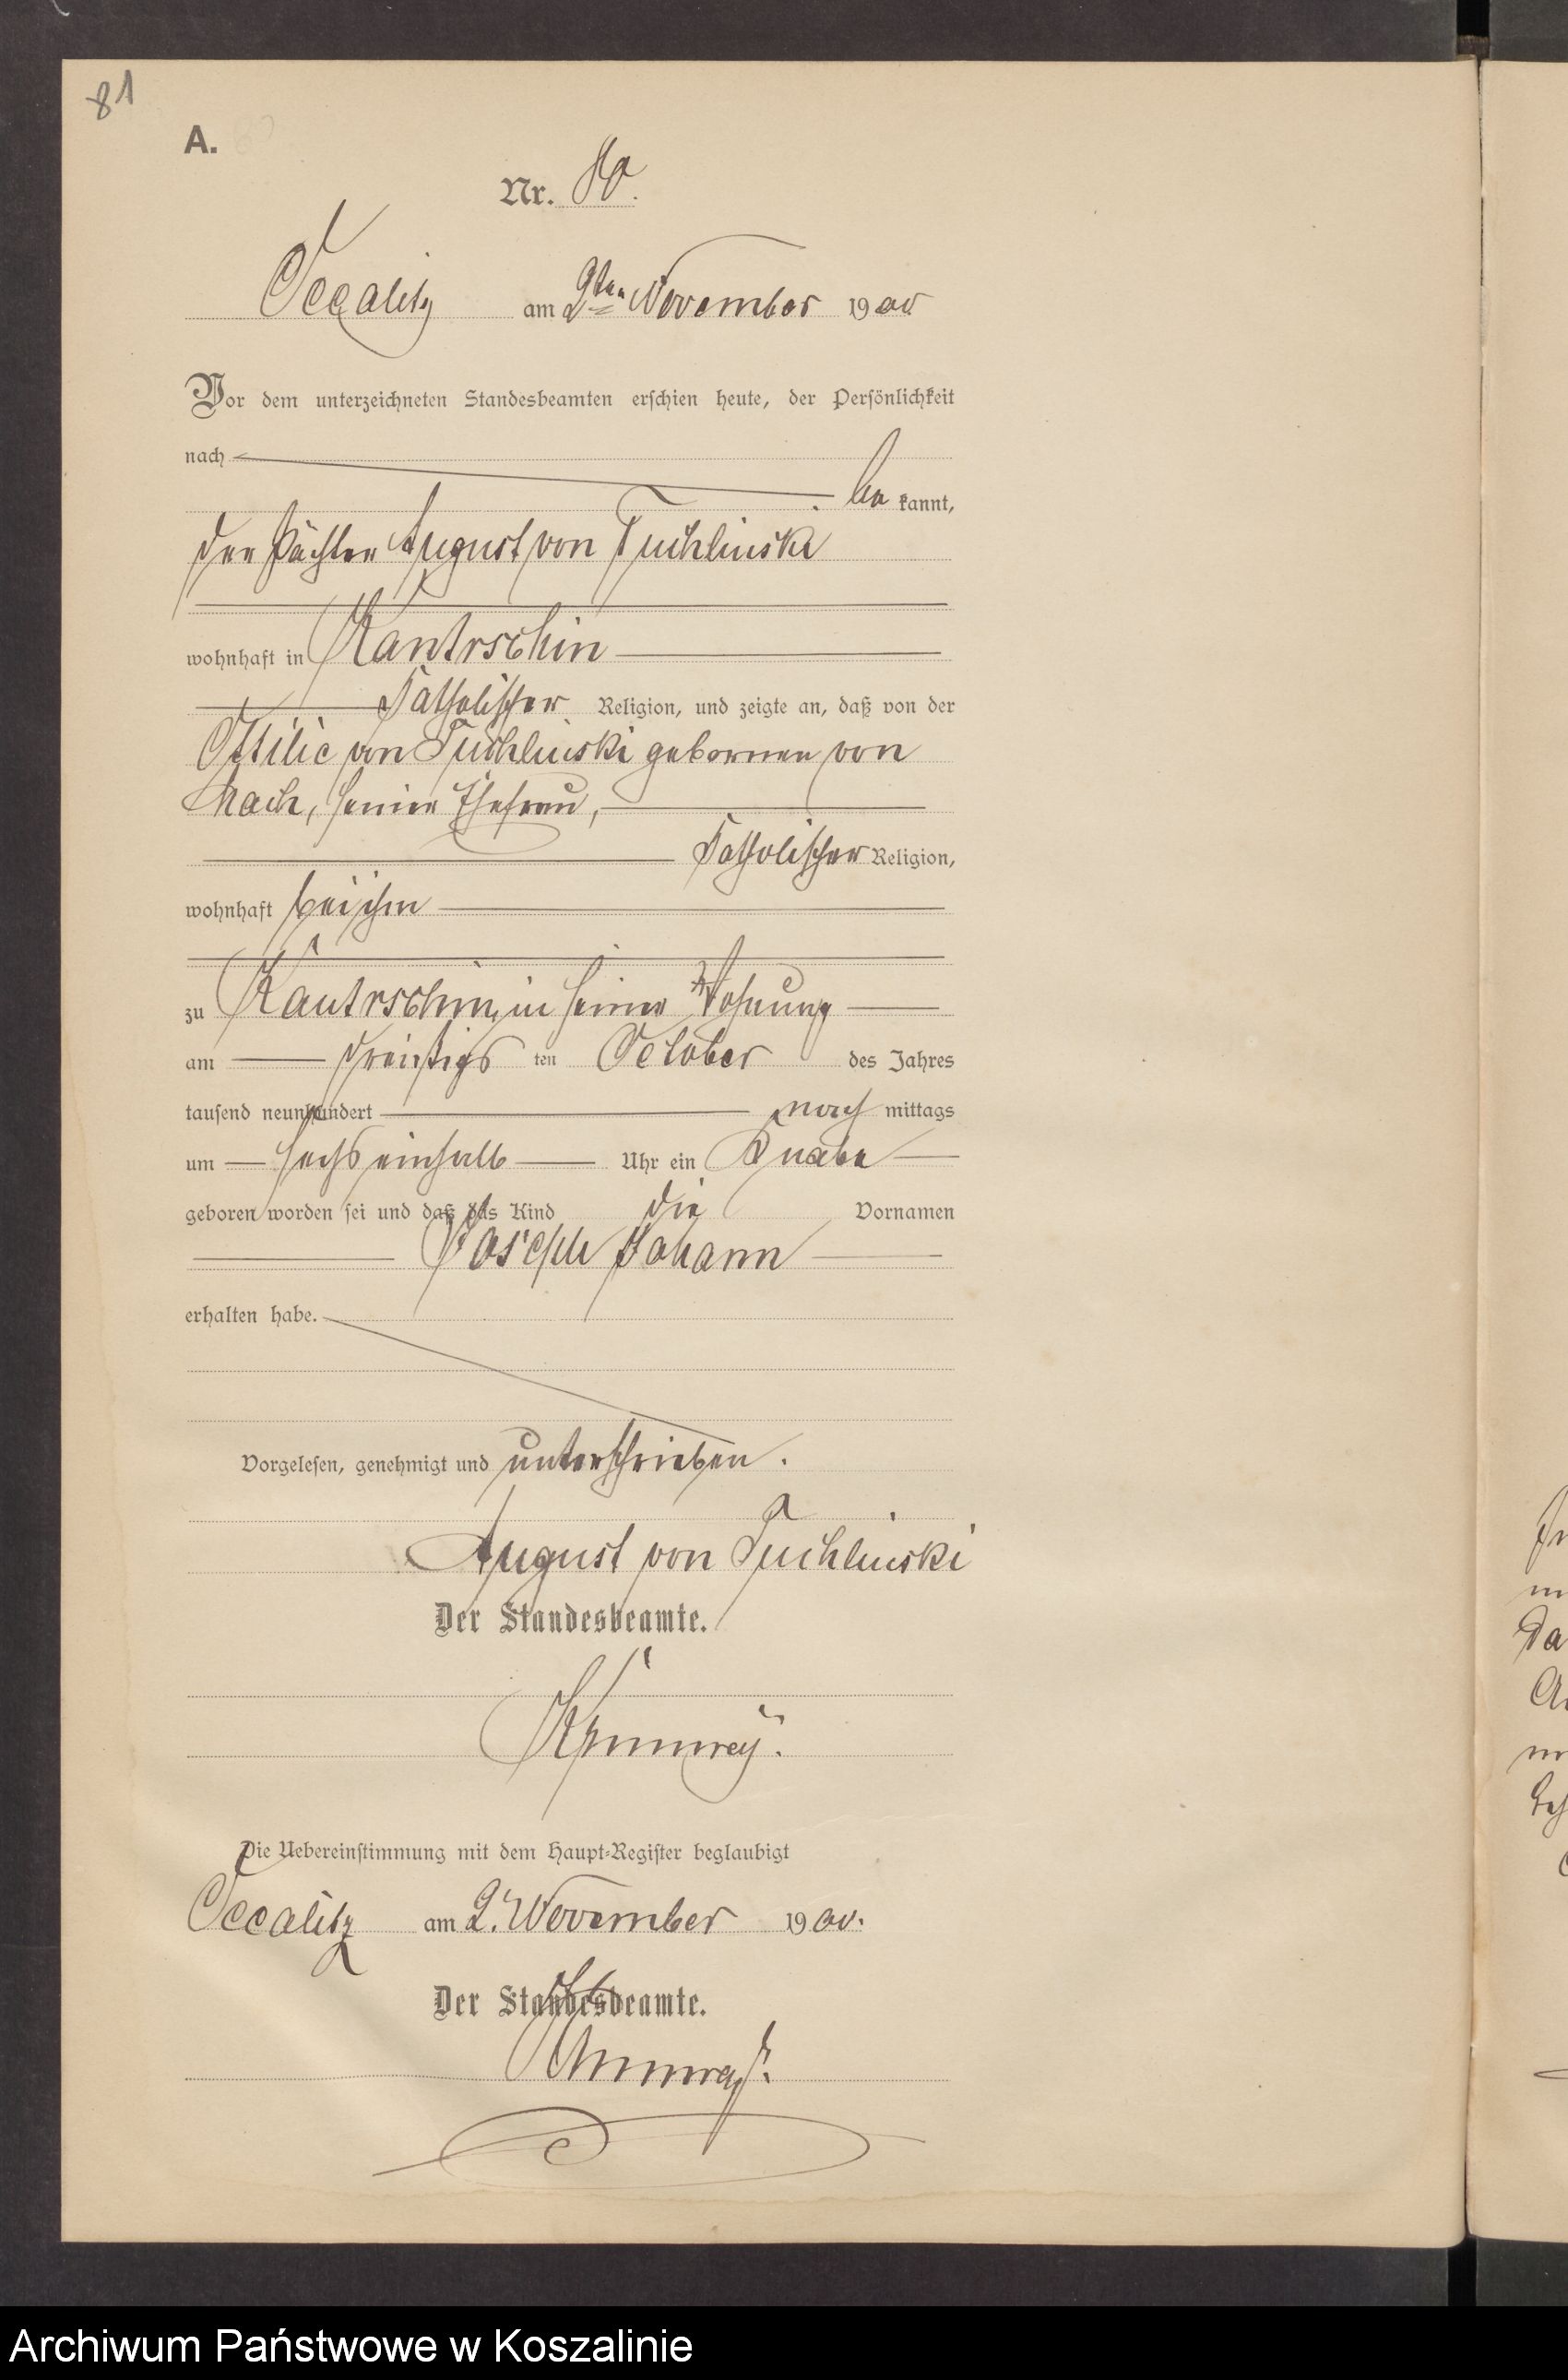 81
A.
Nr. 80.
Occalitz am 2ten November 1900
Vor dem unterzeichneten Standesbeamten erschien heute, der Persönlichkeit
nach be kannt,
der Pächter August von Tuchlinski
wohnhaft in Kantrschin
katholischer Religion, und zeigte an, daß von der
Ottilie von Tuchlinski geborenen von
Mach, seiner Ehefrau,
katholischer Religion,
wohnhaft bei ihm
zu Kantrschin, in seiner Wohnung
am dreißigs ten October des Jahres
tausend neunhundert nach mittags
um sechs einhalb Uhr ein Knabe
geboren worden sei und daß das Kind die Vornamen
Joseph Johann
erhalten habe.
Vorgelesen, genehmigt und unterschrieben.
August von Tuchlinski
Der Standesbeamte.
Die Uebereinstimmung mit dem Haupt-Register beglaubigt
Occalitz am 2. November 1900.
Der Standesbeamte.
Archiwum Państwowe w Koszalinie